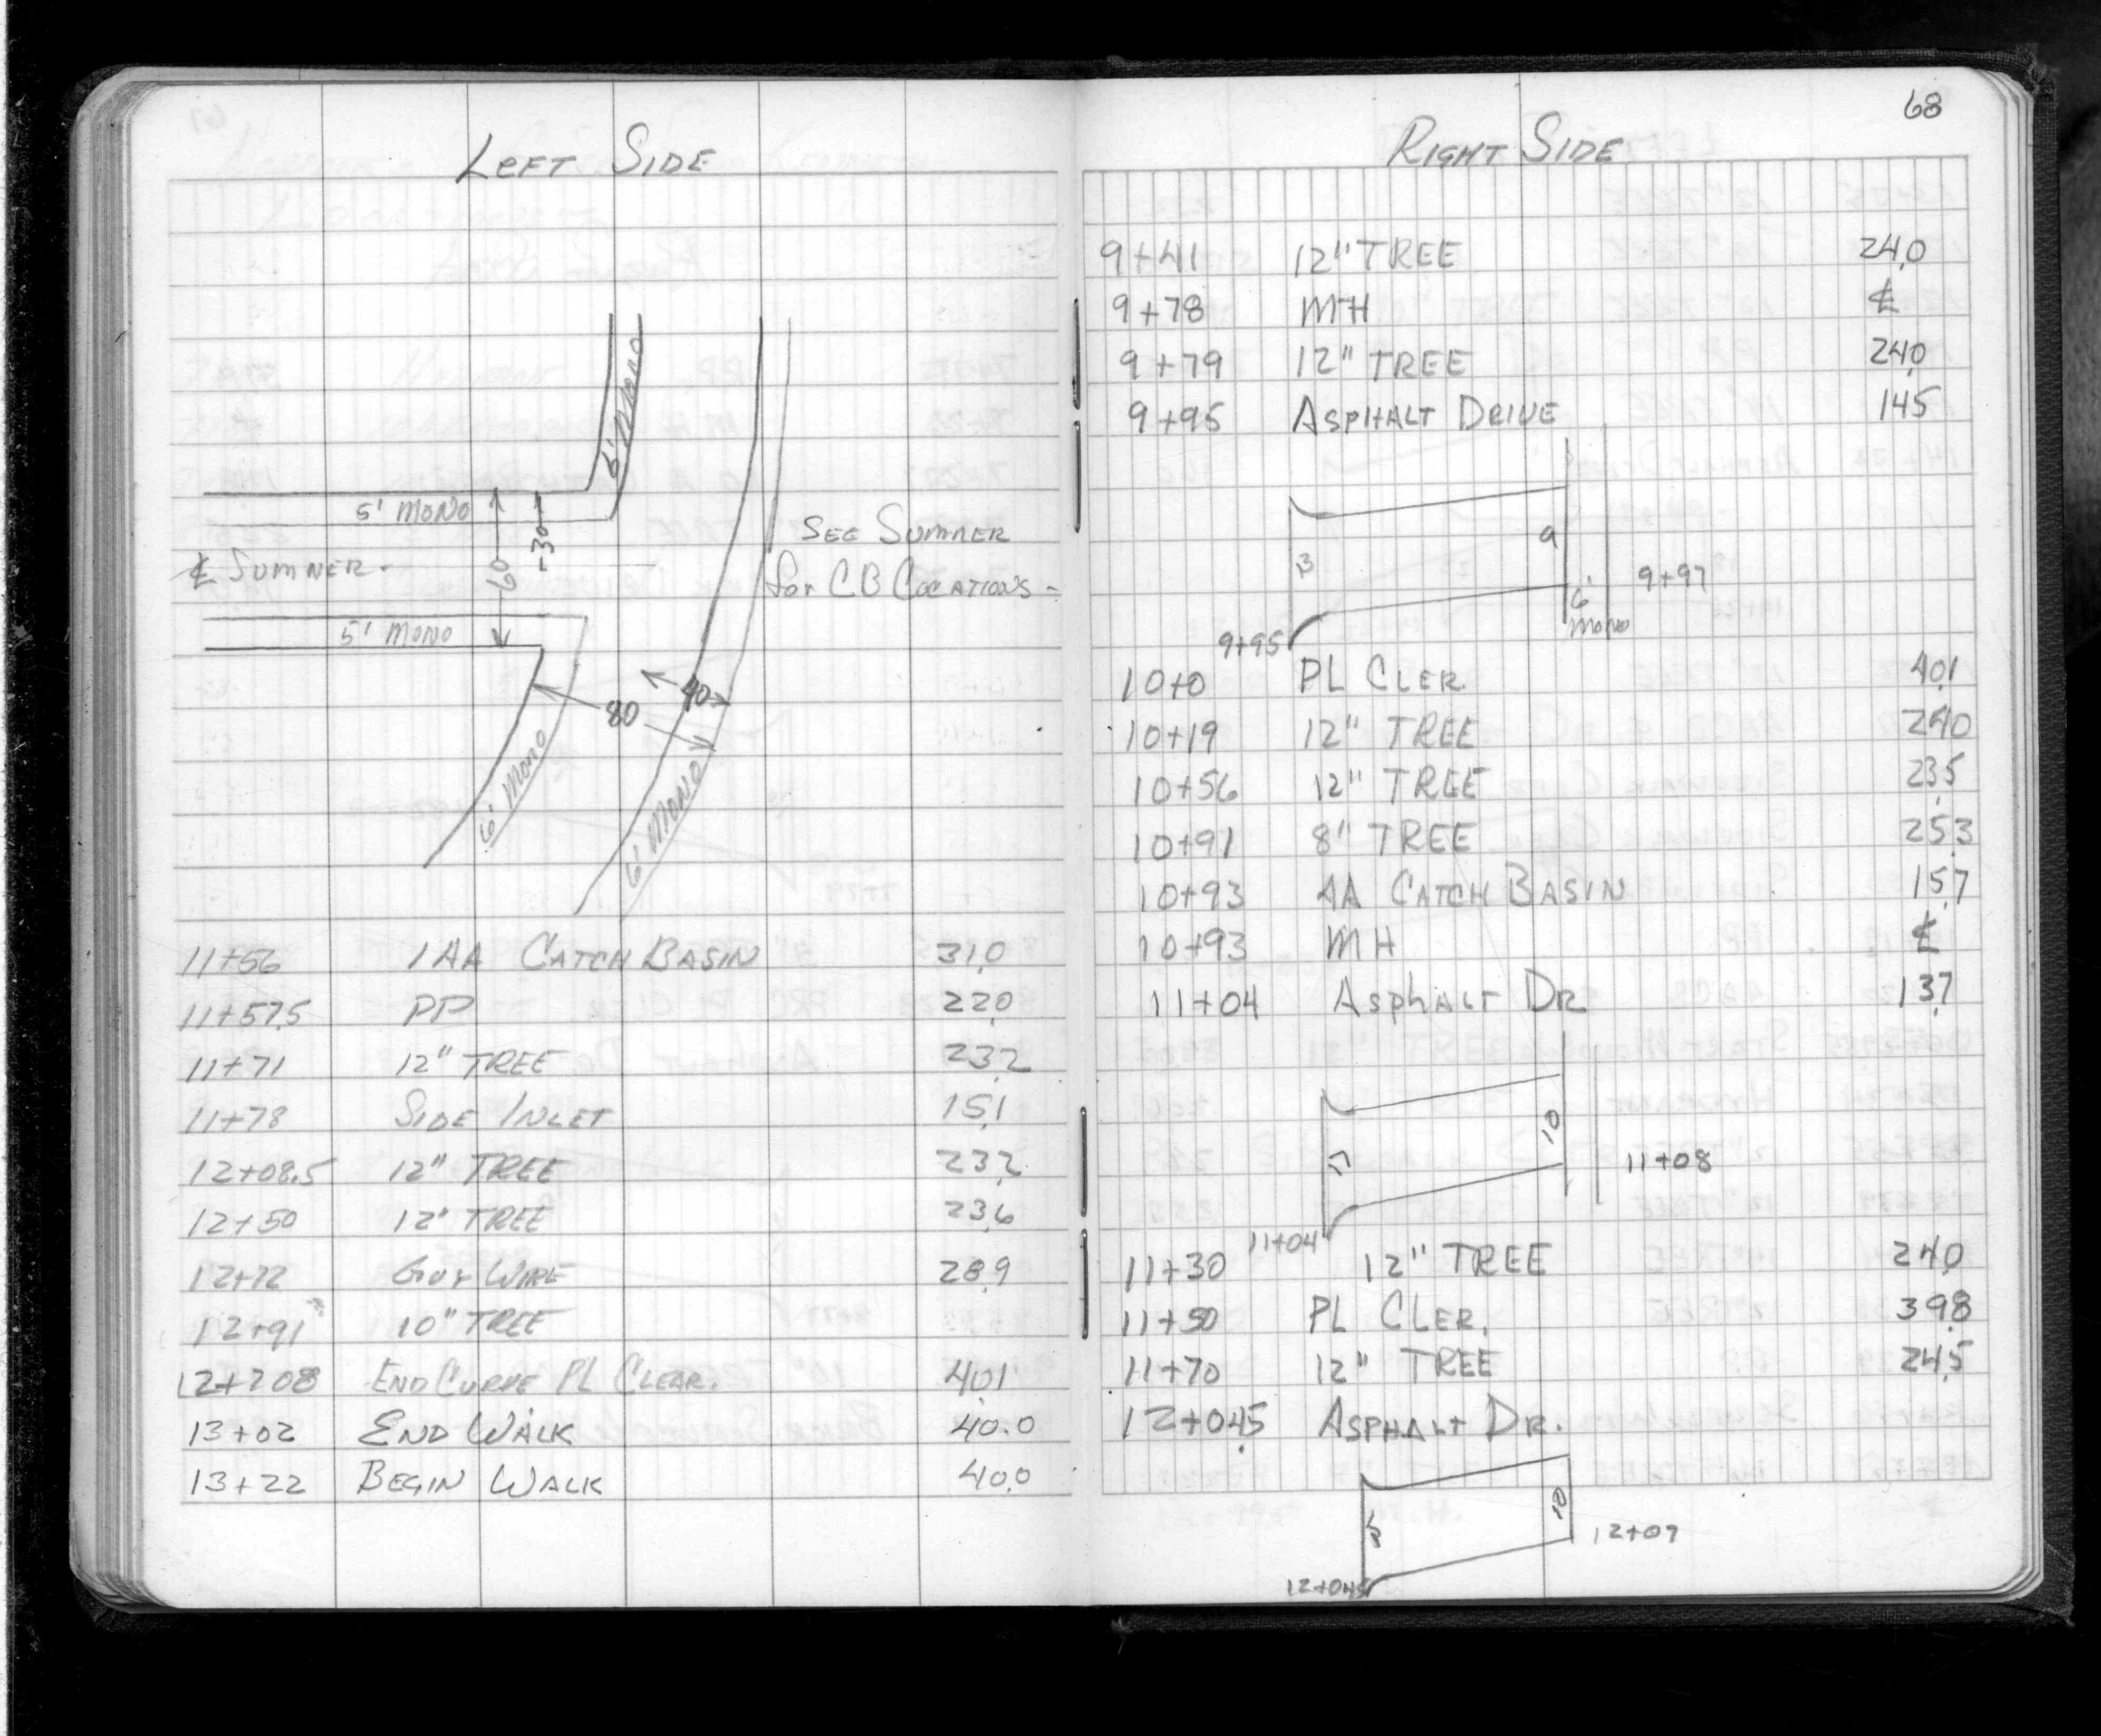 LEFT SIDE
6' MONO
5' MONO
30
60
℄ SUMNER
5' MONO
SEE SUMNER
for CB LOCATIONS
40
80
6' MONO
6' MONO
11+56 1 AA CATCH BASIN 31.0
11+57.5 PP 22.0
11+71 12" TREE 23.2
11+78 SIDE INLET 15.1
12+08.5 12" TREE 23.2
12+50 12" TREE 23.6
12+72 GUY WIRE 28.9
12+91 10" TREE
12+208 END CURVE PL CLEAR. 40.1
13+02 END WALK 40.0
13+22 BEGIN WALK 40.0
68
RIGHT SIDE
9+41 12" TREE 24.0
9+78 MH ℄
9+79 12" TREE 24.0
9+95 ASPHALT DRIVE 14.5
13 9
6' MONO
9+97
9+95
10+0 PL CLER 40.1
10+19 12" TREE 24.0
10+56 12" TREE 23.5
10+91 8" TREE 25.3
10+93 AA CATCH BASIN 15.7
10+93 MH ℄
11+04 ASPHALT DR 13.7
10
11+08
11+04
11+30 12" TREE 24.0
11+50 PL CLER. 39.8
11+70 12" TREE 24.5
12+04.5 ASPHALT DR.
10
12+07
12+04.5